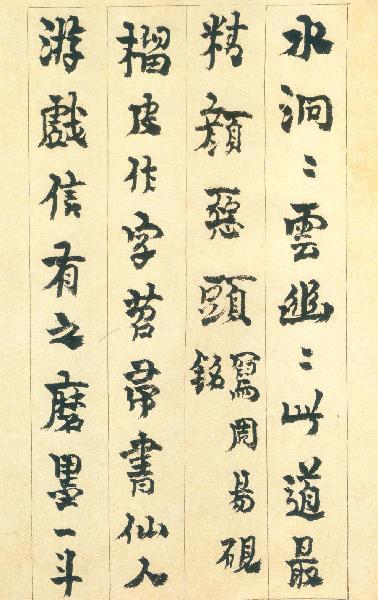 水洞〻雲幽〻此道最
精顏惡頭
寫周易硯
銘
榴皮作字苔帚書仙人
游戲信有之磨墨一斗